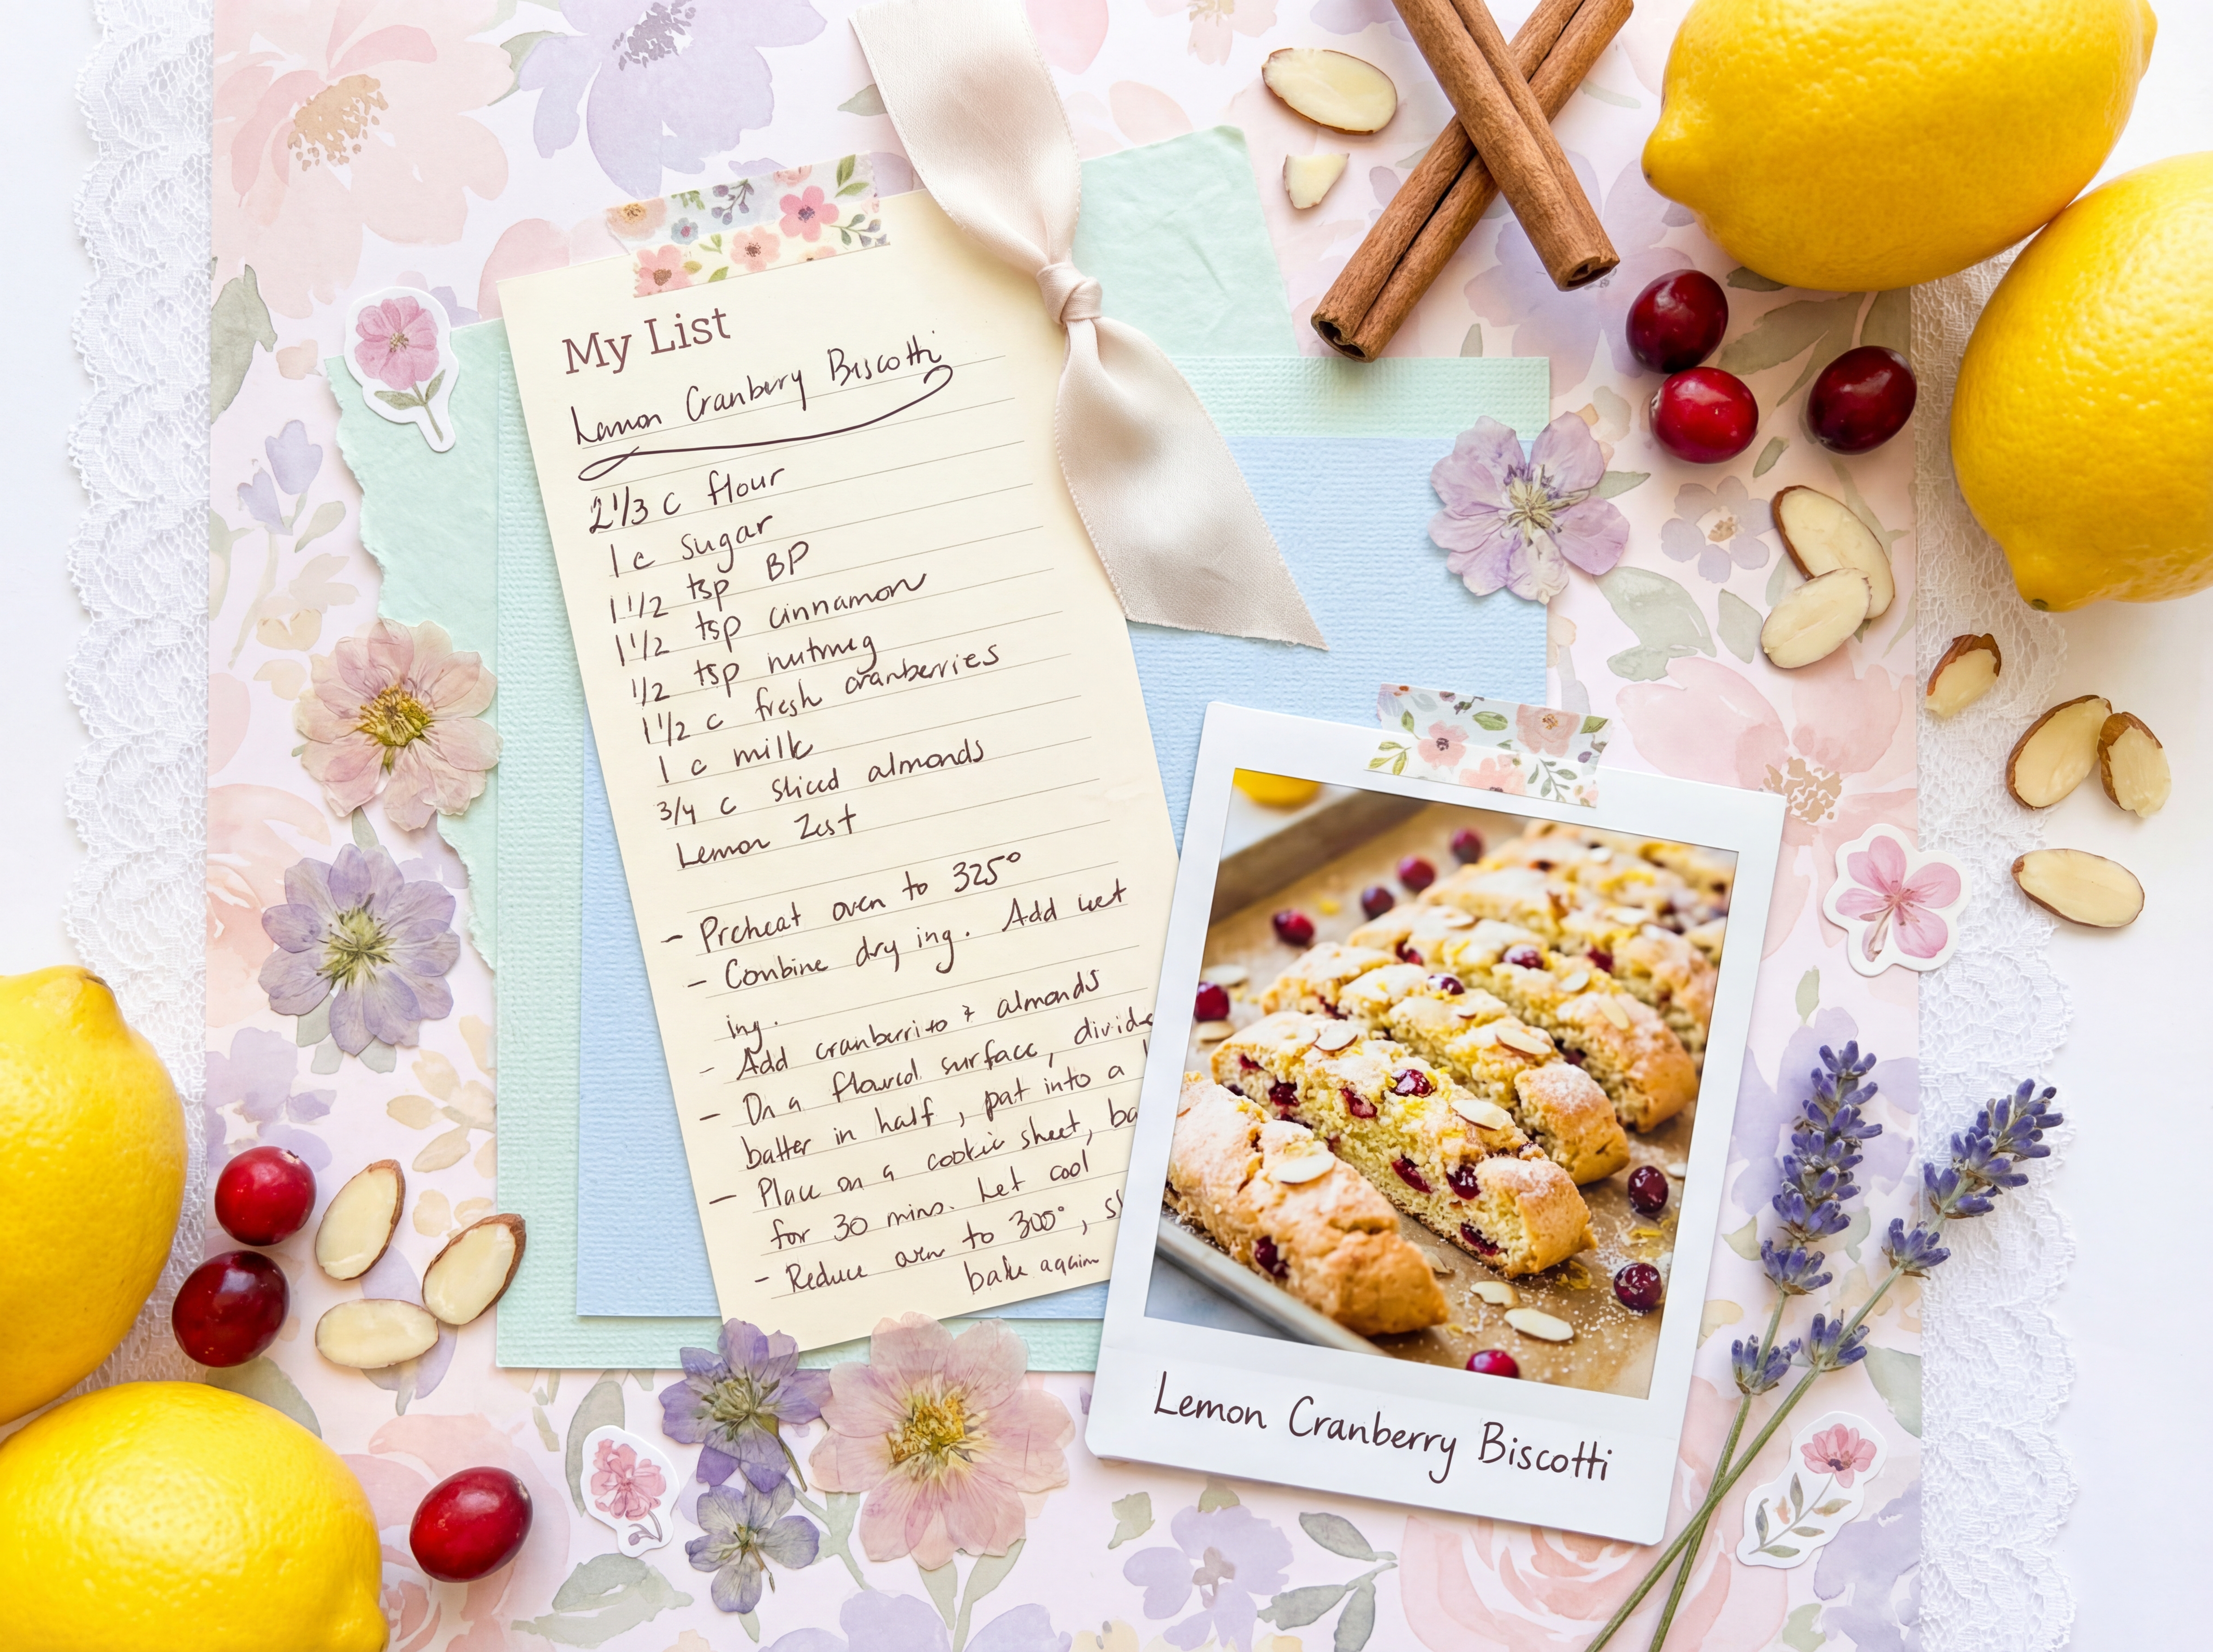 My List
Lemon Cranberry Biscotti
2 1/3 c flour
1 c sugar
1 1/2 tsp BP
1 1/2 tsp cinnamon
1/2 tsp nutmeg
1 1/2 c fresh cranberries
1 c milk
3/4 c sliced almonds
Lemon Zest
- Preheat oven to 325°
- Combine dry ing. Add wet
ing.
- Add cranberries & almonds
- On a floured surface, divide
batter in half, pat into a
- Place on a cookie sheet,
for 30 mins. Let cool
- Reduce oven to 300°,
bake again
Lemon Cranberry Biscotti